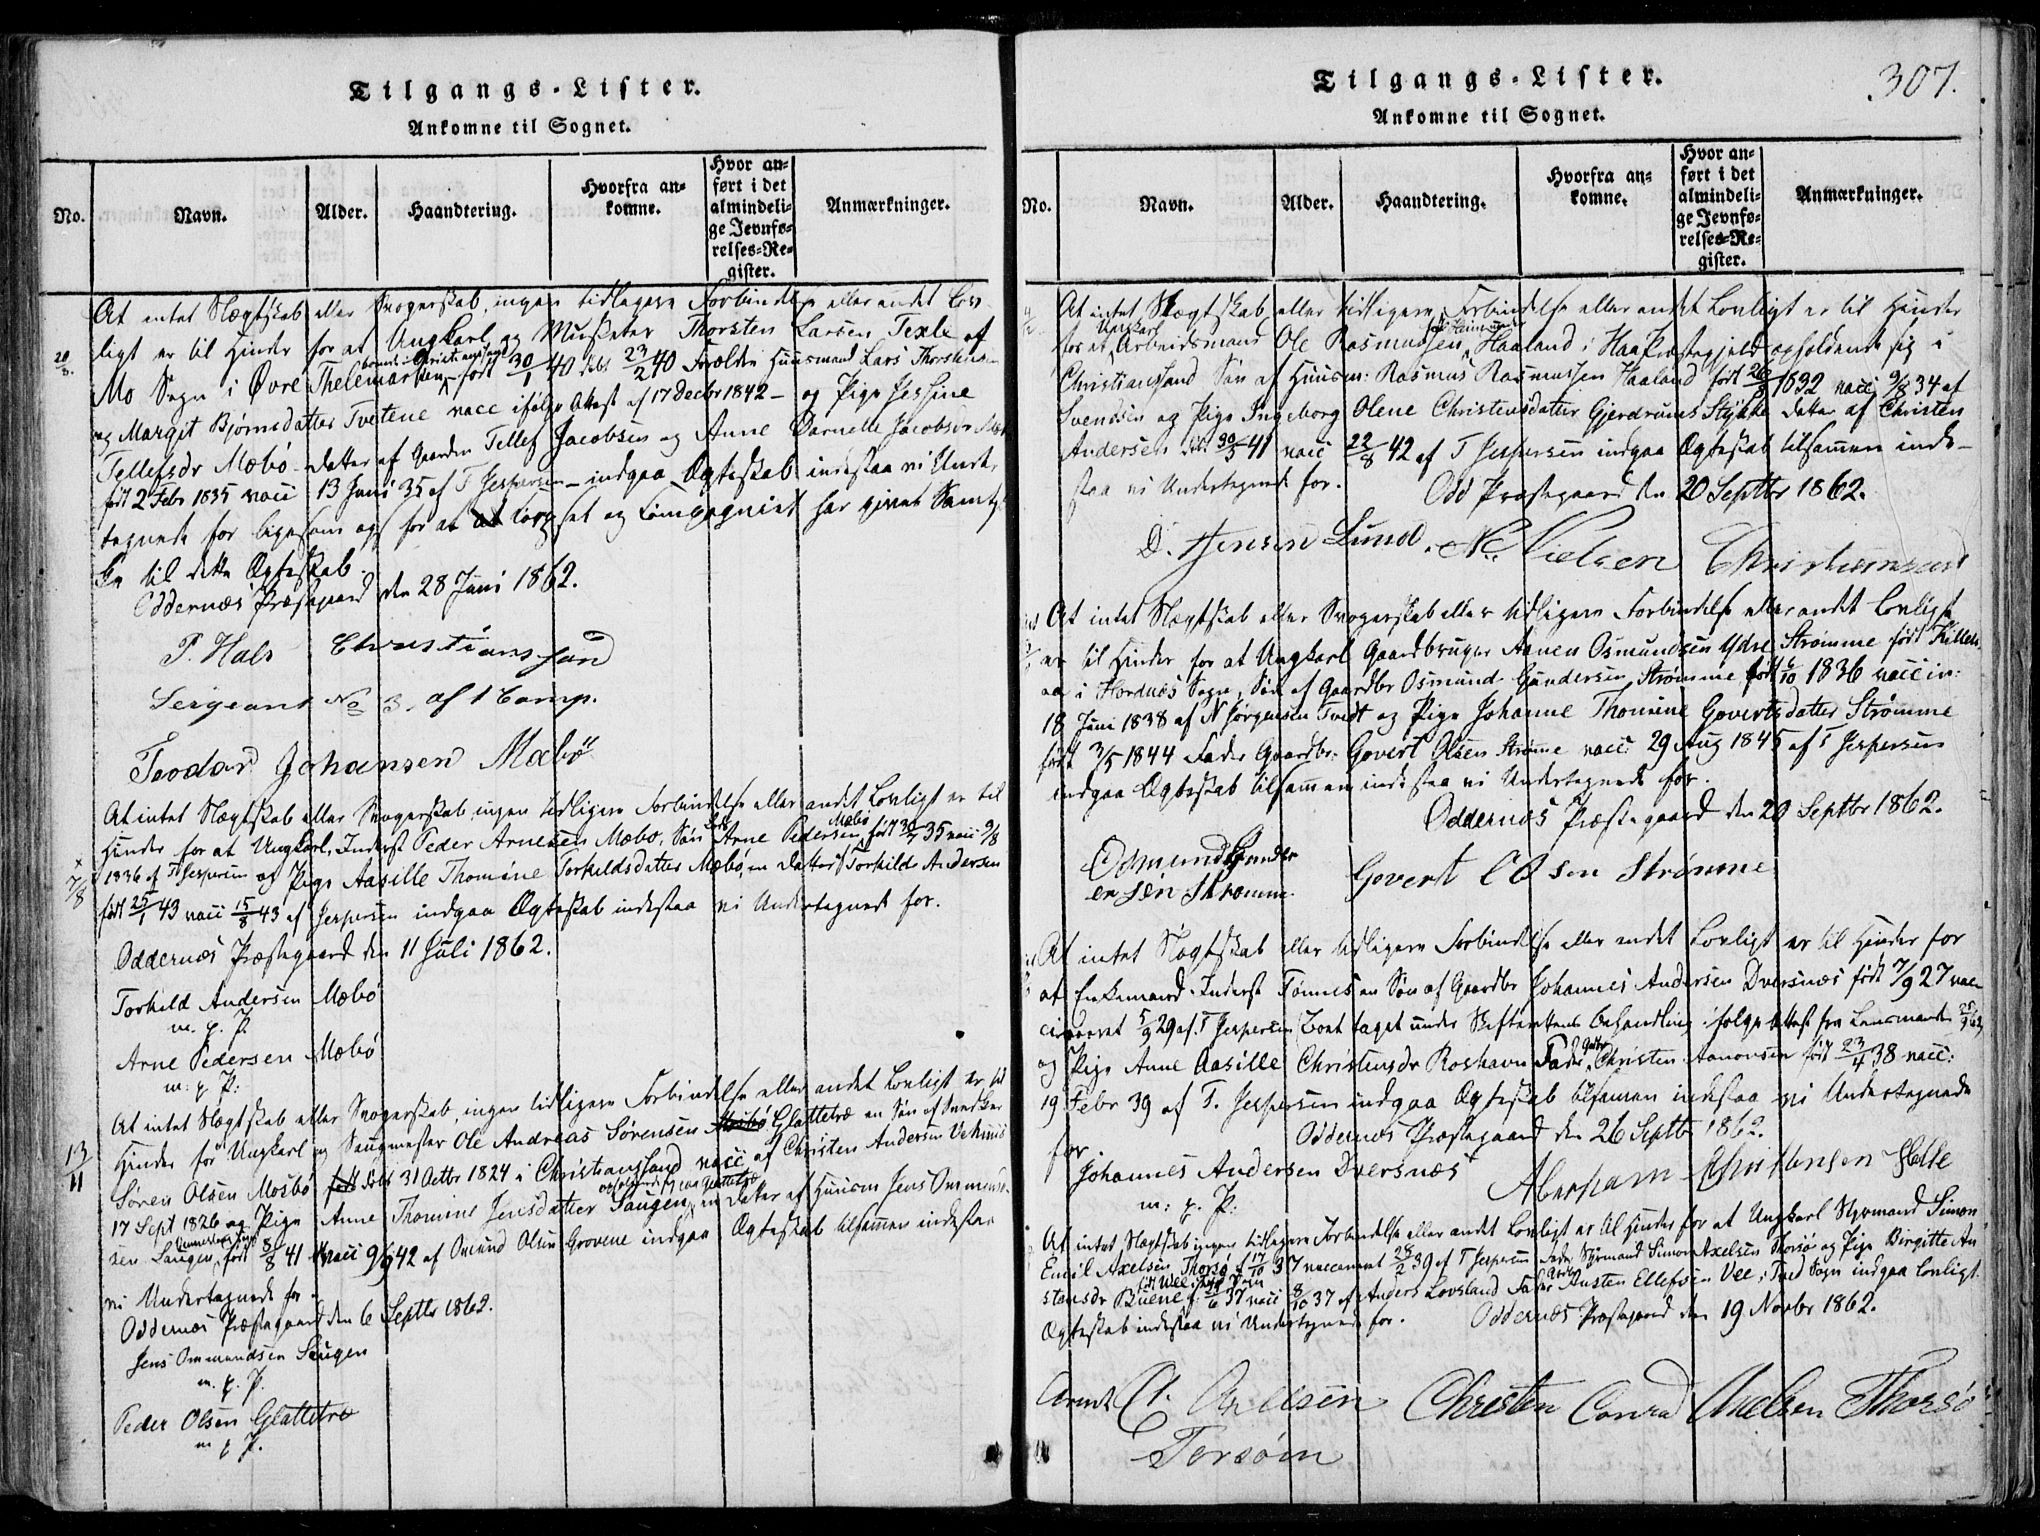 Tilgangs-Lister.
Ankomne til Sognet.
No.
Navn.
Alder.
Haandtering.
Hvorfra an-
komne.
Hvor an-
ført i det
almindeli-
ge Jevnfø-
relses-Re-
gister.
Anmærkninger.
At intet Slægtskab eller Svogerskab, ingen tidligere Forbindelse eller andet Lov-
ligt er til Hinder for at Ungkarl og Musketer Thorsten Larsen Texle af
Mo Sogn i Øvre Thelemarken født 30/1 40 døbt 23/2 40 Forældre Huusmand Lars Thorstens
og Margit Bjørnsdatter Tvetene vacc ifølge Attest af 17 Decbr 1842 – og Pige Jessine
Tellefsdr Mæbø – Datter af Gaardm Tellef Jacobsen og Anne Jacobsdr
født 2 Febr 1835 vacc 13 Juni 35 af T Jespersen – indgaa Ægteskab indestaa vi Under-
tegnede for ligesom og for at og Compagniet har givet Samtyk-
ke til dette Ægteskab.
Oddernæs Præstegaard den 28 Juni 1862.
P. Hals Christianssand
Sergeant No 3. af 1 Comp.
Teodor Johansen Mæbø
At intet Slægtskab eller Svogerskab, ingen tidligere Forbindelse eller andet Lovligt er til
Hinder for at Ungkarl, Inderst Peder Arnesen Mæbø, Søn Arne Pedersen Mæbø født 30/7 35 vacc 9/8
7/8
1836 af T Jespersen og Pige Aasille Thomine Torkildsdatter Mæbø, en Datter af Torkild Andersen
født 25/1 43 vacc 15/8 43 af Jespersen indgaa Ægteskab indestaa vi Undertegnede for.
Oddernæs Præstegaard den 11 Juli 1862.
Torkild Andersen Mæbø
m. p. P.
Arne Pedersen Mæbø
m. p. P:
At intet Slægtskab eller Svogerskab, ingen tidligere Forbindelse eller andet Lovligt er til
13/11
Hinder for Ungkarl og Saugmester Ole Andreas Sørensen Glattetræ en Søn af Snedker
Søren Olsen Mosbø født 31 Octbr 1824 i Christianssand vacc af Christen Andersen
17 Sept 1826 og Pige Anne Thomine Jensdatter Saugen, en Datter af Huusm Jens Ommunds-
sen Saugen, født 8/8 41 vacc 9/9 42 af Omund Olsen Grovene indgaa Ægteskab tilsammen indestaa
vi Undertegnede for
Oddernæs Præstegaard den 6 Septbr 1862.
Jens Ommundsen Saugen
m. p. P.
Peder Olsen Glattetræ
m p P.
307.
Tilgangs-Lister.
Ankomne til Sognet.
No.
Navn.
Alder.
Haandtering.
Hvorfra an-
komne.
Hvor an-
ført i det
almindeli-
ge Jevnfø-
relses-Re-
gister.
Anmærkninger.
At intet Slægtskab eller tidligere Forbindelse eller andet Lovligt er til Hinder
for at Ungkarl Arbeidsmand Ole Rasmussen Haaland i Haa Præstegjeld opholdende sig i
Christianssand Søn af Huusm: Rasmus Rasmussen Haaland født 26/3 1832 vacc 9/8 34 af
Svendsen og Pige Ingeborg Olene Christensdatter Gjerdrums Stykke Datter af Christen
Andersen født 30/5 41 vacc 22/8 42 af T Jespersen indgaa Ægteskab tilsammen inde-
staa vi Undertegnede for.
Odd Præstegaard den 20 Septbr 1862.
D. Jensen Lund. N. Nielsen Christianssand
At intet Slægtskab eller Svogerskab eller tidligere Forbindelse eller andet Lovligt
er til Hinder for at Ungkarl Gaardbruger Aanen Osmundsen Ydre Strømme født
i Sogn, Søn af Gaardbr Osmund Gundersen Strømme født 6/10 1836 vaccin:
18 Juni 1838 af N Jørgensen Tvedt og Pige Johanne Thomine Govertsdatter Strømme
født 3/5 1844 Fader Gaardbr: Govert Olsen Strømme vacc: 29 Aug 1845 af T Jespersen
indgaa Ægteskab tilsammen indestaa vi Undertegnede for.
Oddernæs Præstegaard den 20 Septbr 1862.
Osmund Gunder
ensen Strømme Govert Olsen Strømme
At intet Slægtskab eller tidligere Forbindelse eller andet Lovligt er til Hinder for
at Enkemand Inderst Tønnes en Søn af Gaardbr Johannes Andersen Dversnæs født 7/9 27 vac-
cineret 5/9 29 af T Jespersen (Boet taget under Skifterettens Behandling ifølge Attest fra Lensmanden
og Pige Anne Aasille Christensdr Roshavn Fader Christen Aanonsen født 23/4 38 vacc:
19 Febr 39 af T. Jespersen indgaa Ægteskab tilsammen indestaa vi Undertegnede
for
Oddernæs Præstegaard den 26 Septbr 1862.
Johannes Andersen Dversnæs Abraham Christensen
m: p. P:
At intet Slægtskab ingen tidligere Forbindelse eller andet Lovligt er til Hinder for at Ungkarl Styrmand Simon
Emil Axelsen Thorsø f 17/10 37 vaccineret 28/2 39 af T Jespersen Fader Styrmand Simon Axelsen Thorsø og Pige Birgitte Au-
stensdr Buene f. 37 vacc 8/10 37 af Anders Lovsland Fader Austen Ellefsen Vee i Tved Sogn indgaa Lovligt
Ægteskab indestaa vi Undertegnede for. Oddernæs Præstegaard den 19 Novbr 1862.
Christen Conrad Axelsen Thorsø